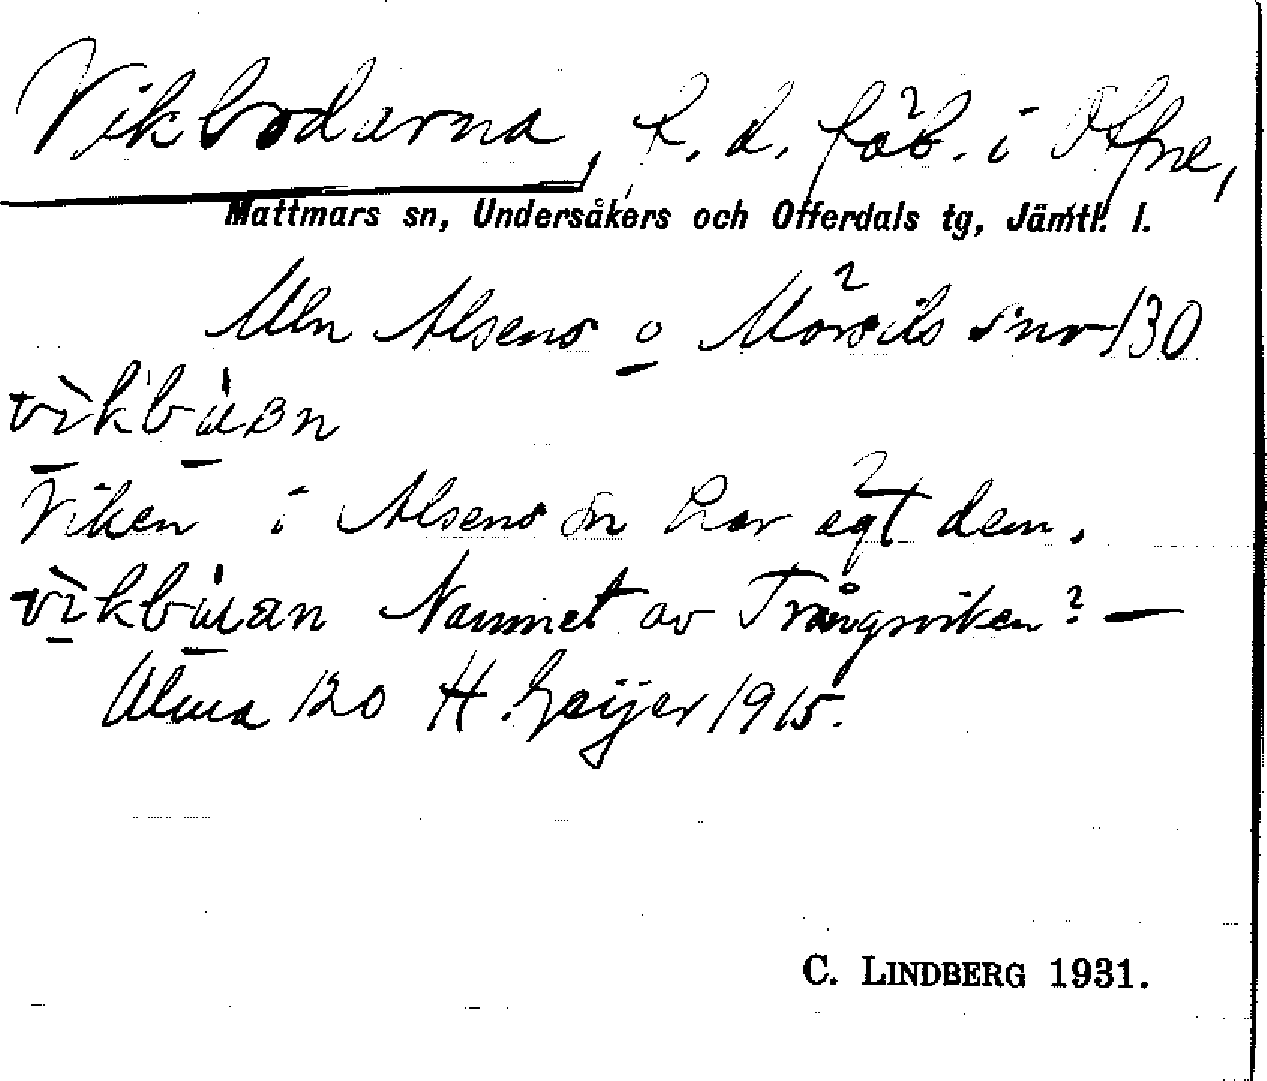 Vikbodarna, f. d. fäb. i Offne,
Mattmars sn, Undersåkers och Offerdals tg, Jämtl. l.
Mln Alsens o Mörsils snr 130
vìkbùan
Viken i Alsens sn har ägt dem.
vìkbùan Namnet av Trångsviken? —
Alma 120 H. Geijer 1915.
C. LINDBERG 1931.